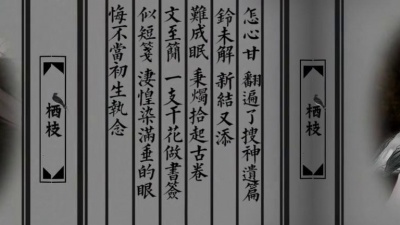 怎心甘 翻遍了搜神遺篇
鈴未解 新結又添
難成眠 秉燭拾起古卷
文至簡 一支干花做書簽
似短箋 淒惶染滿垂的眼
悔不當初生執念
栖枝
栖枝